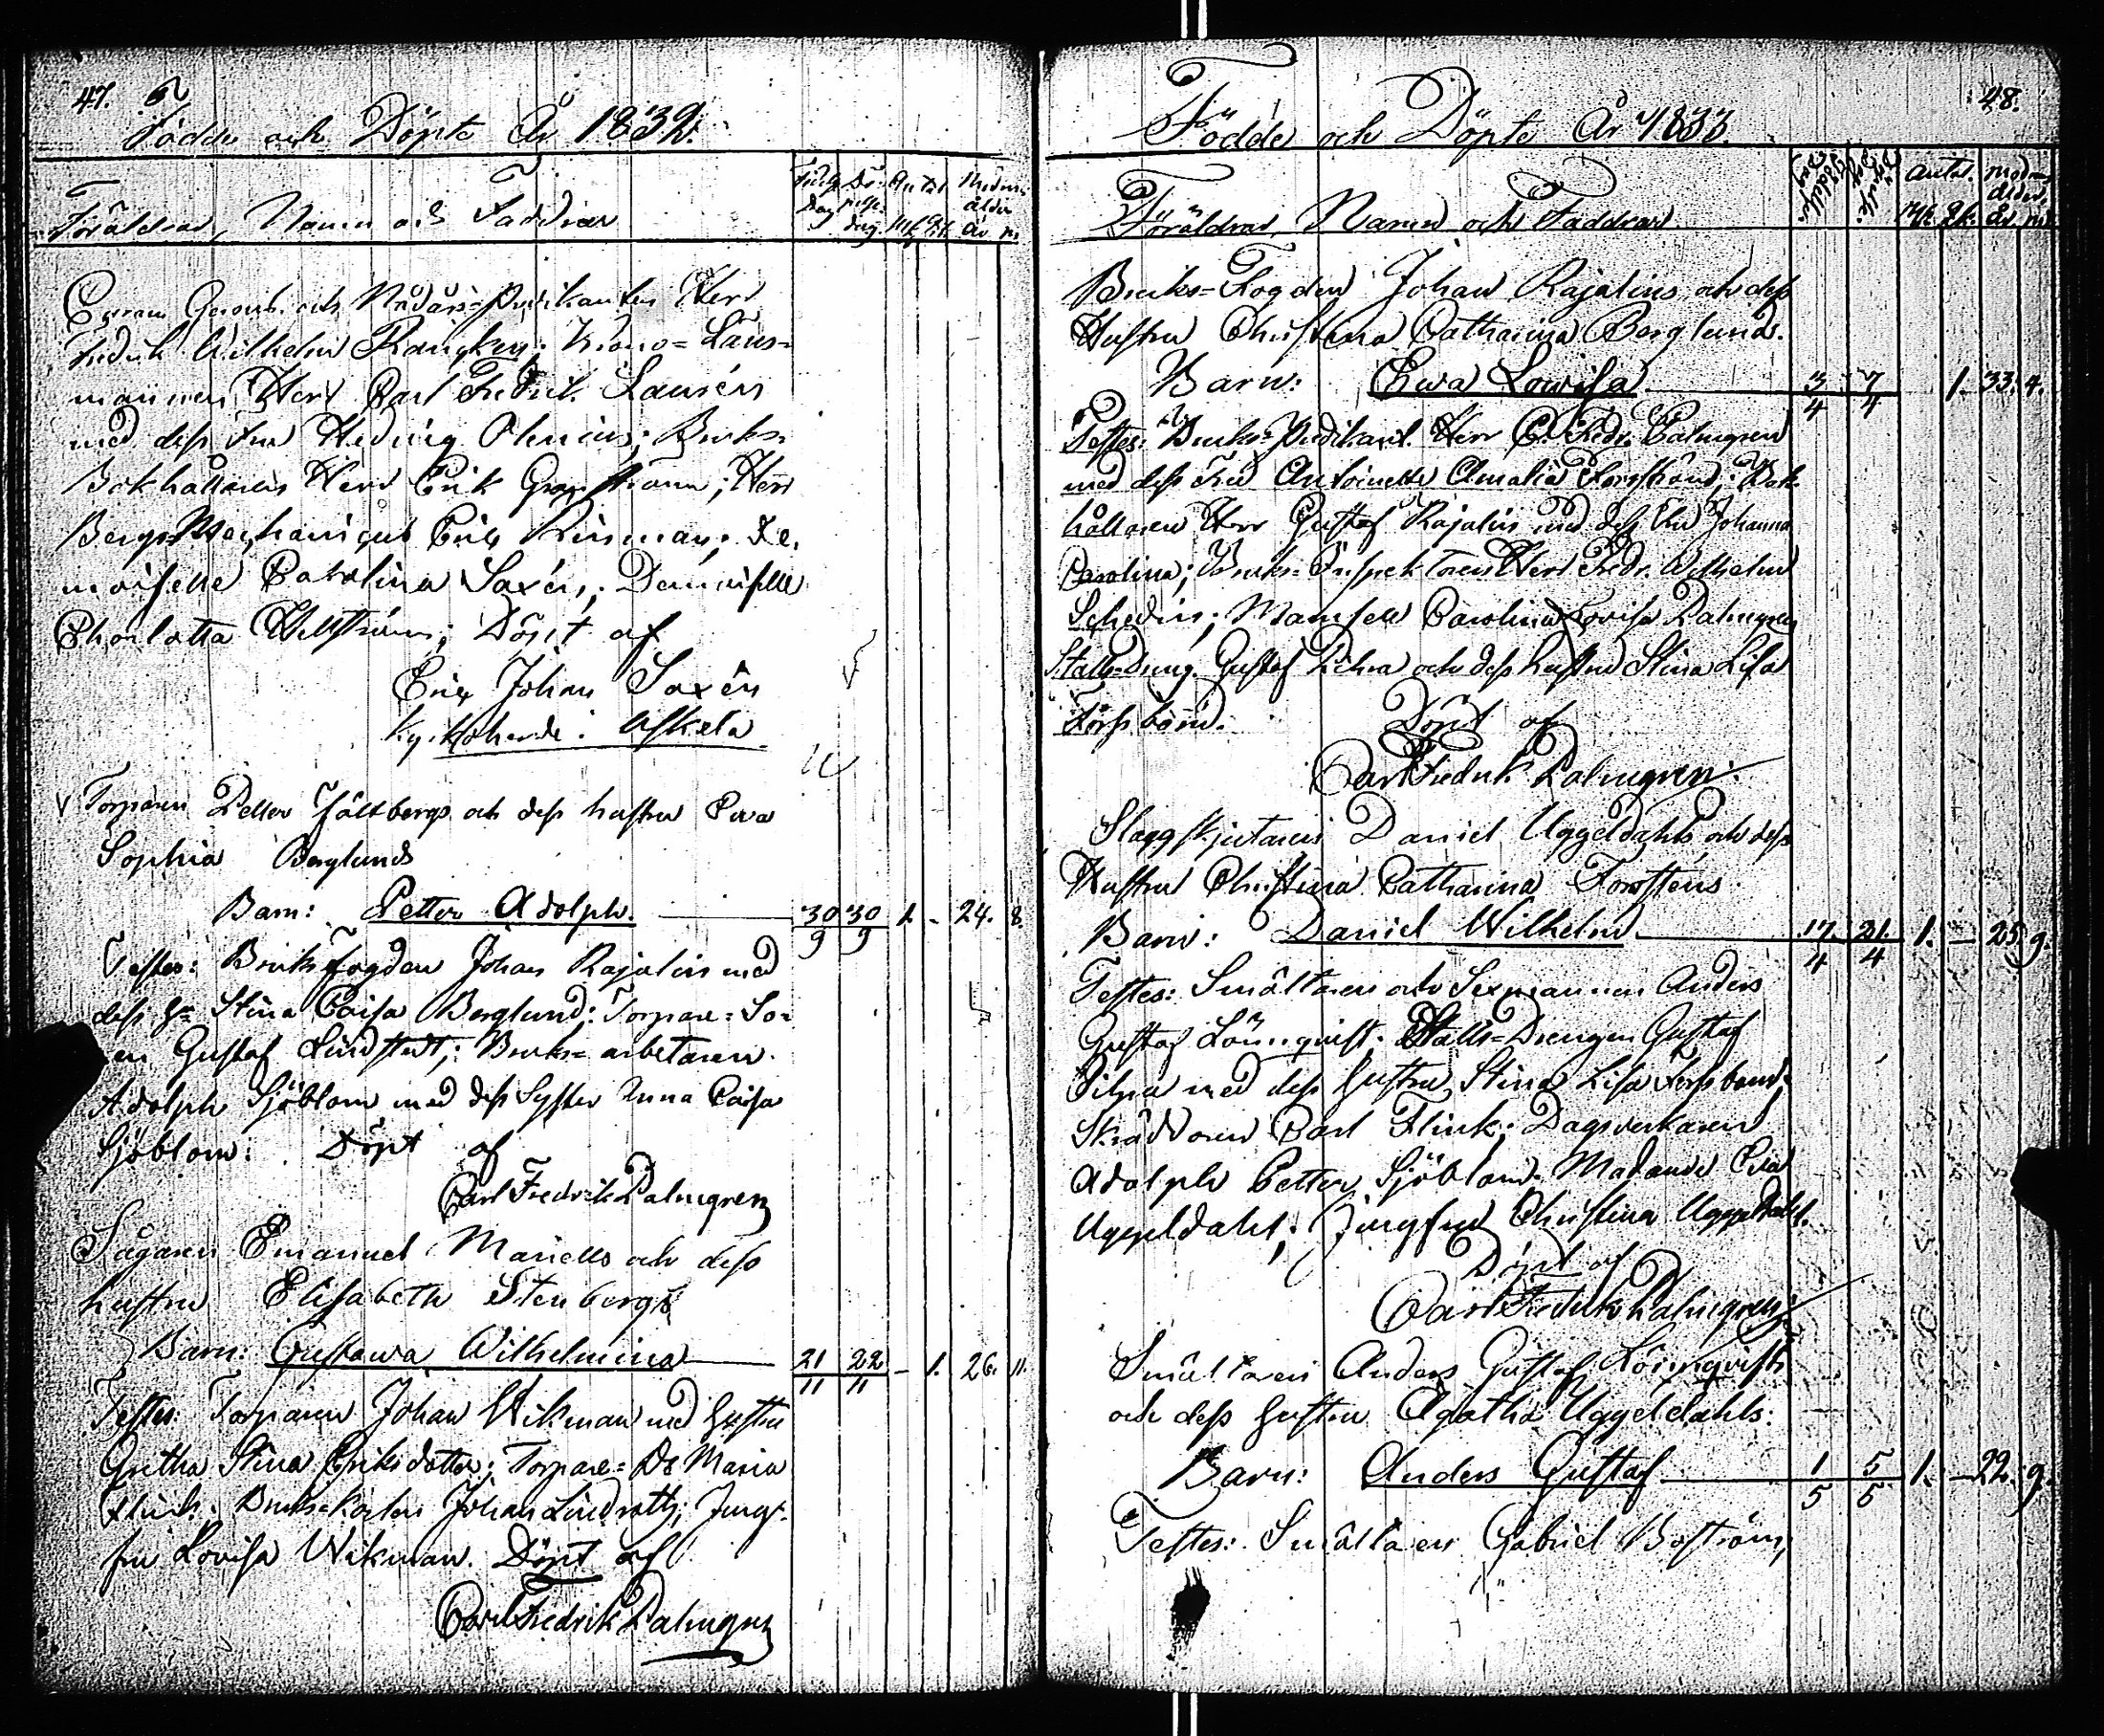 47.
Födde och Döpte År 1832.
Föräldrar, Namn och Faddrar
Födelse Dag Döpelse dag Antal Mk Qk Modrens ålder År m.
och Nådårs-Predikanten Herr
Fredrik Wilhelm Rancken; Krono-Läns-
mannen Herr Carl Fredrik Laurén
med dess Fru Hedvig Bruks-
Bokhållaren Herr Erik Herr
Bergs Mechanicus Eric Rinman; De-
moiselle Carolina Saxén; Demoiselle
Charlotta Döpt af
Eric Johan Saxén
Kyrkoherde i Askola
Torparen Petter Fältbergs och dess hustru Eva
Sophia Berglunds
Barn: Petter Adolph. 30/9 30/9 1. - 24. 8.
Testes: Bruksfogden Johan Rajalin med
dess Hu Stina Caisa Berglund; Torpare-So-
en Gustaf Lindstedt; Bruks-arbetaren
Adolph Sjöblom med dess Syster Anna Caisa
Sjöblom: Döpt af
Carl Fredrik Palmgren
Sågaren Emanuel Mariells och dess
hustru Elisabeth Stenbergs
Barn: Gustawa Wilhelmina 21/11 22/11 - 1. 26. 11.
Testes: Torparen Johan Wikman med Hustru
Gretha Stina Eriksdotter; Torpare-Dr Maria
Flink; Bruks-Karlen Johan Lindroth; Jung-
fru Lovisa Wikman. Döpt af
Carl Fredrik Palmgren
48.
Födde och Döpte År 1833.
Föräldrar, Namn och Faddrar
Födelse Dag Döpelse Dag Antal. Mk. Qk. Modrens ålder År. m.
Bruks-Fogden Johan Rajalins och dess
Hustru Christina Catharina Berglunds.
Barn: Ewa Lowisa 3/4 7/4 1. 33. 4.
Testes: Bruks-Predikant. Herr C. Fredr. Palmgren
med dess Fru Antoinette Amalia Bok-
hållaren Herr Gustaf Rajalin med dess Fru Johanna
Carolina; Bruks-Inspektoren Herr Fredr. Wilhelm
Schedin; Mamsell Carolina Lovisa Palmgren
Stalls-Dreng. Gustaf och dess hustru Stina Lisa
Forsbom. Döpt af
Carl Fredrik Palmgren.
Slaggskjutaren Daniel Uggeldahls och dess
Hustru Christina Catharina Forstens
Barn: Daniel Wilhelm 17/4 21/4 1. - 25. 9.
Testes: Smältaren och Sexmannen Anders
Gustaf Lönnqvist; Stalls-Drengen Gustaf
med dess hustru Stina Lisa Forsbom;
Skräddaren Carl Flink; Dagsverkaren
Adolph Petter Sjöblom; Madame Eva
Uggeldahl; Jungfru Christina Uggeldahl.
Döpt af
Carl Fredrik Palmgren
Smältaren Anders Gustaf Lönnqvists
och dess hustru Agatha Uggeldahls:
Barn: Anders Gustaf 1/5 5/5 1. - 22. 9.
Testes: Smältaren Gabriel Boström,